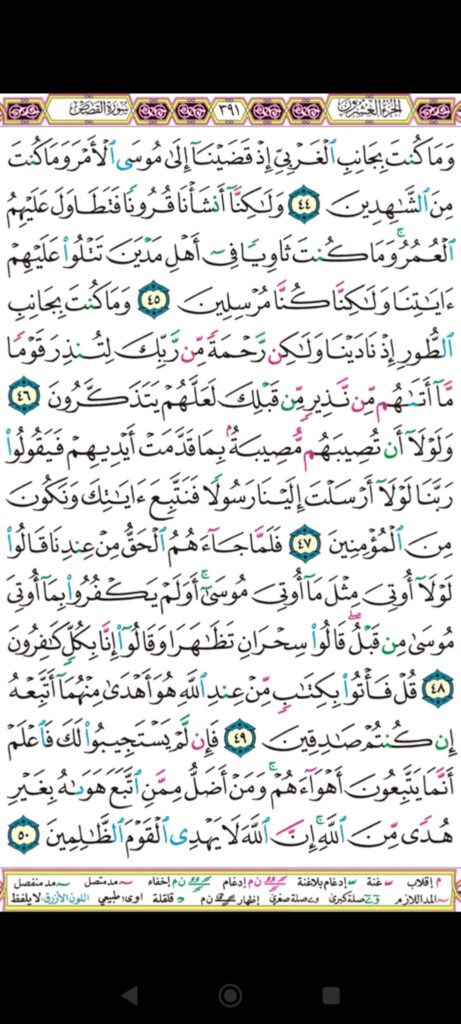 الجزء العشرون ٣٩١ سورة القصص
وَمَا كُنتَ بِجَانِبِ الْغَرْبِيِّ إِذْ قَضَيْنَآ إِلَىٰ مُوسَى الْأَمْرَ وَمَا كُنتَ
مِنَ الشَّٰهِدِينَ ٤٤ وَلَٰكِنَّآ أَنشَأْنَا قُرُونًا فَتَطَاوَلَ عَلَيْهِمُ
الْعُمُرُ ۚ وَمَا كُنتَ ثَاوِيًا فِىٓ أَهْلِ مَدْيَنَ تَتْلُوا۟ عَلَيْهِمْ
ءَايَٰتِنَا وَلَٰكِنَّا كُنَّا مُرْسِلِينَ ٤٥ وَمَا كُنتَ بِجَانِبِ
الطُّورِ إِذْ نَادَيْنَا وَلَٰكِن رَّحْمَةً مِّن رَّبِّكَ لِتُنذِرَ قَوْمًا
مَّآ أَتَىٰهُم مِّن نَّذِيرٍ مِّن قَبْلِكَ لَعَلَّهُمْ يَتَذَكَّرُونَ ٤٦
وَلَوْلَآ أَن تُصِيبَهُم مُّصِيبَةٌۢ بِمَا قَدَّمَتْ أَيْدِيهِمْ فَيَقُولُوا۟
رَبَّنَا لَوْلَآ أَرْسَلْتَ إِلَيْنَا رَسُولًا فَنَتَّبِعَ ءَايَٰتِكَ وَنَكُونَ
مِنَ الْمُؤْمِنِينَ ٤٧ فَلَمَّا جَآءَهُمُ الْحَقُّ مِنْ عِندِنَا قَالُوا۟
لَوْلَآ أُوتِىَ مِثْلَ مَآ أُوتِىَ مُوسَىٰٓ ۚ أَوَلَمْ يَكْفُرُوا۟ بِمَآ أُوتِىَ
مُوسَىٰ مِن قَبْلُ ۖ قَالُوا۟ سِحْرَانِ تَظَٰهَرَا وَقَالُوٓا۟ إِنَّا بِكُلٍّ كَٰفِرُونَ
٤٨ قُلْ فَأْتُوا۟ بِكِتَٰبٍ مِّنْ عِندِ اللَّهِ هُوَ أَهْدَىٰ مِنْهُمَآ أَتَّبِعْهُ
إِن كُنتُمْ صَٰدِقِينَ ٤٩ فَإِن لَّمْ يَسْتَجِيبُوا۟ لَكَ فَاعْلَمْ
أَنَّمَا يَتَّبِعُونَ أَهْوَآءَهُمْ ۚ وَمَنْ أَضَلُّ مِمَّنِ اتَّبَعَ هَوَىٰهُ بِغَيْرِ
هُدًى مِّنَ اللَّهِ ۚ إِنَّ اللَّهَ لَا يَهْدِى الْقَوْمَ الظَّٰلِمِينَ ٥٠
م إقلاب غنة إدغام بلاغنة ن م إدغام ن م إخفاء مد متصل مد منفصل
المد اللازم صلة كبرى صلة صغرى إظهار ن م قلقلة اوى: طبيعي اللون الأزرق: لا يلفظ